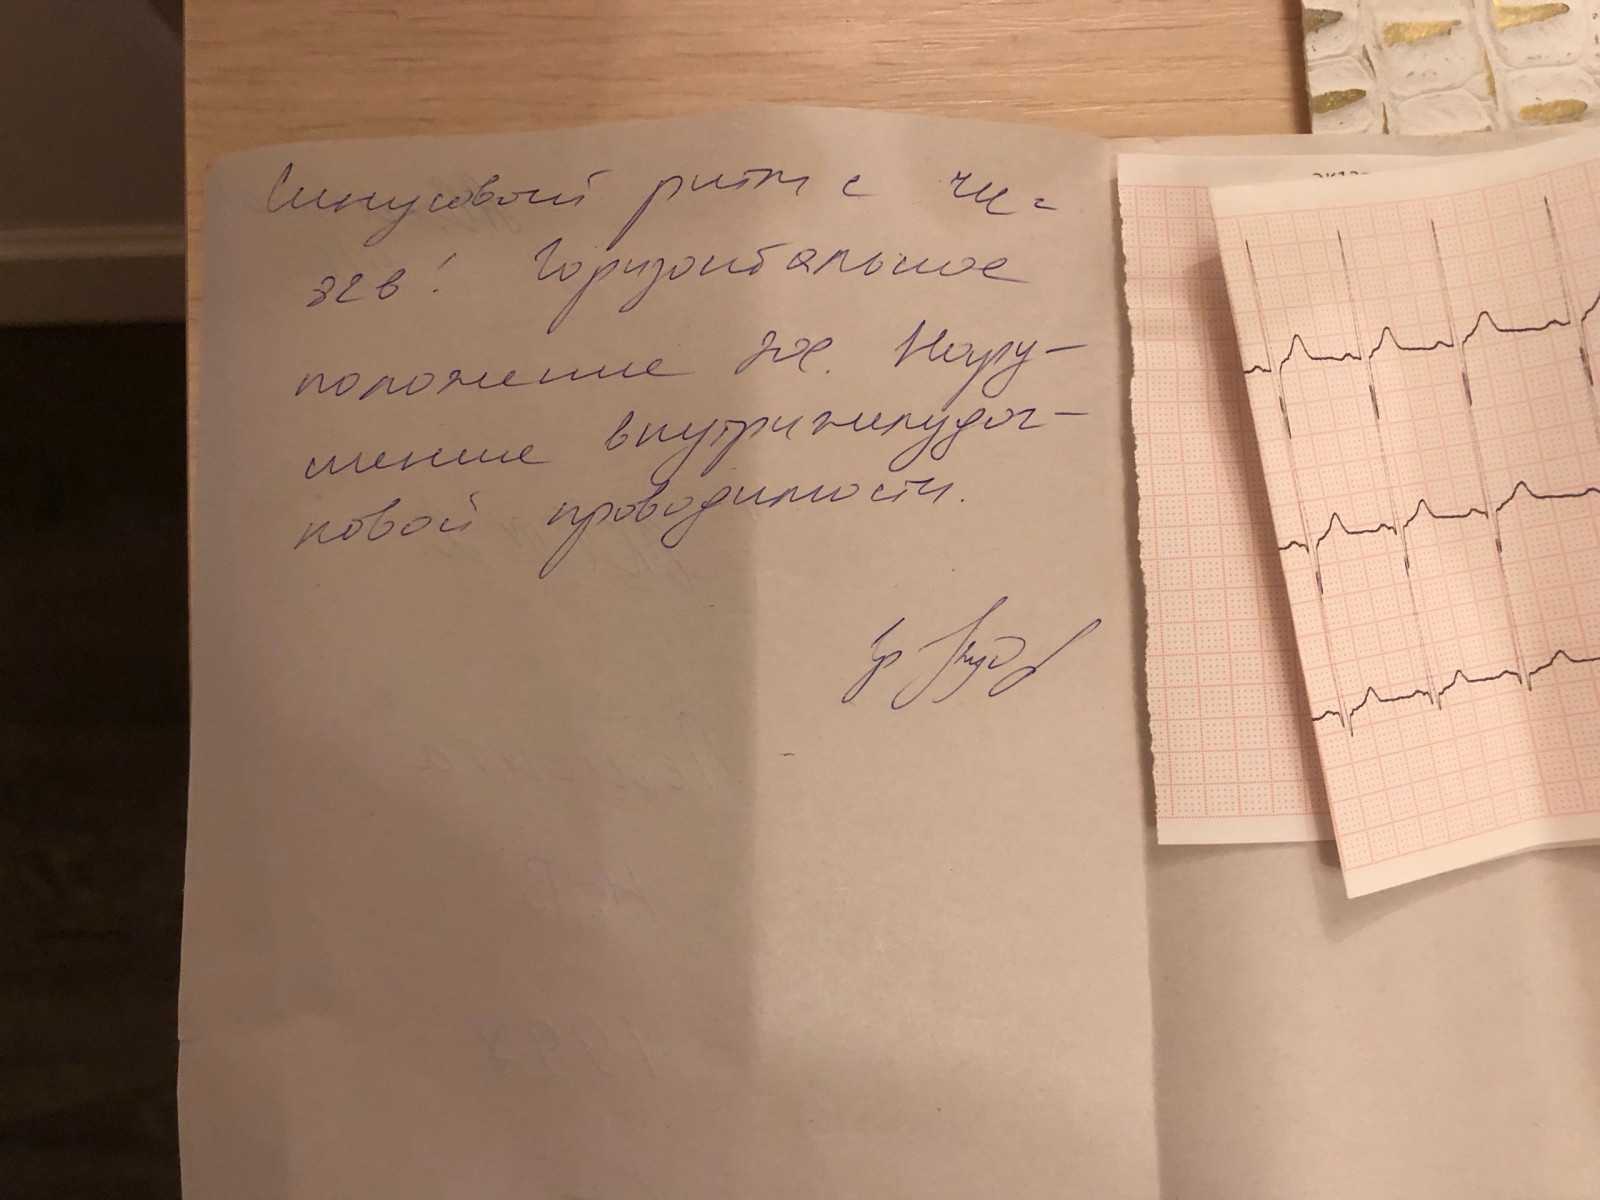 Синусовый ритм с чи=
Горизонтальное
положение ЭОС. Нару-
шение внутрижелудоч-
ковой проводимости.